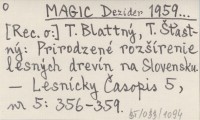 MAGIC Dezider 1959...
[Rec. o:] T. Blattný, T. Šťast-
ný: Prirodzené rozšírenie
lesných drevín na Slovensku.
— Lesnícky Časopis 5,
nr 5: 356-359.